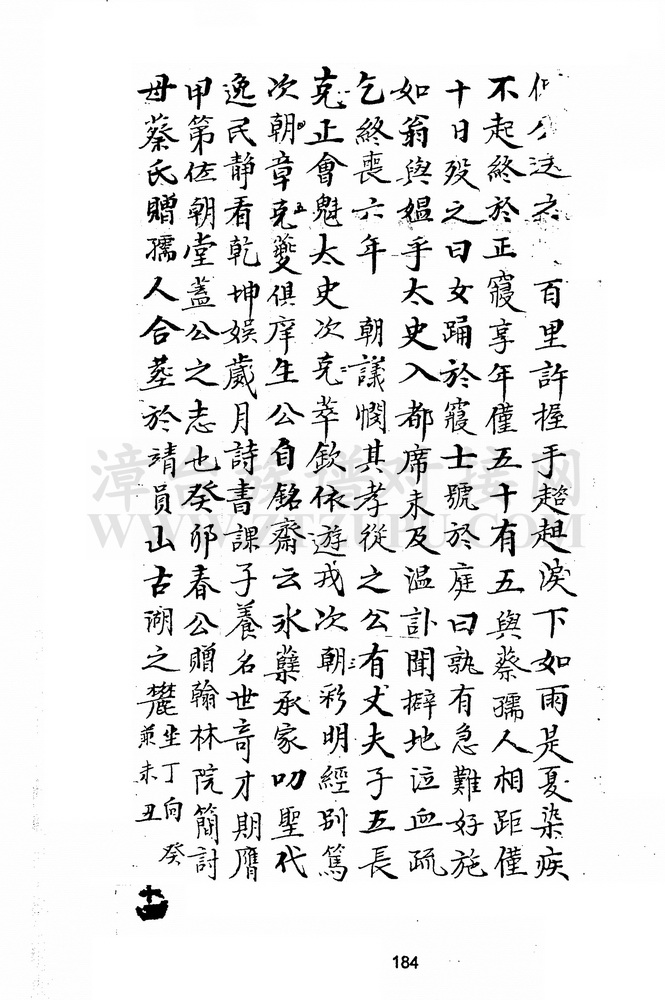 百里許握手趦趄淚下如雨是夏染疾
不起終於正寢享年僅五十有五與蔡孺人相距僅
十日歿之日女踊於寢士號於庭曰孰有急難好施
如翁與媪乎太史入都席未及温訃聞擗地泣血疏
乞終喪六年 朝議憫其孝從之公有丈夫子五長
克正會魁太史次克萃欽依遊戎次朝彩明經別篤
次朝章克夔俱庠生公自銘齋云氷蘖承家叨聖代
逸民静看乾坤娯歲月詩書課子養名世奇才期膺
甲第佐朝堂蓋公之志也癸卯春公贈翰林院簡討
母蔡氏贈孺人合塟於靖員山古湖之麓坐丁向癸
兼未丑
184
漳台族谱对接网
WWW.ZTZUPU.COM